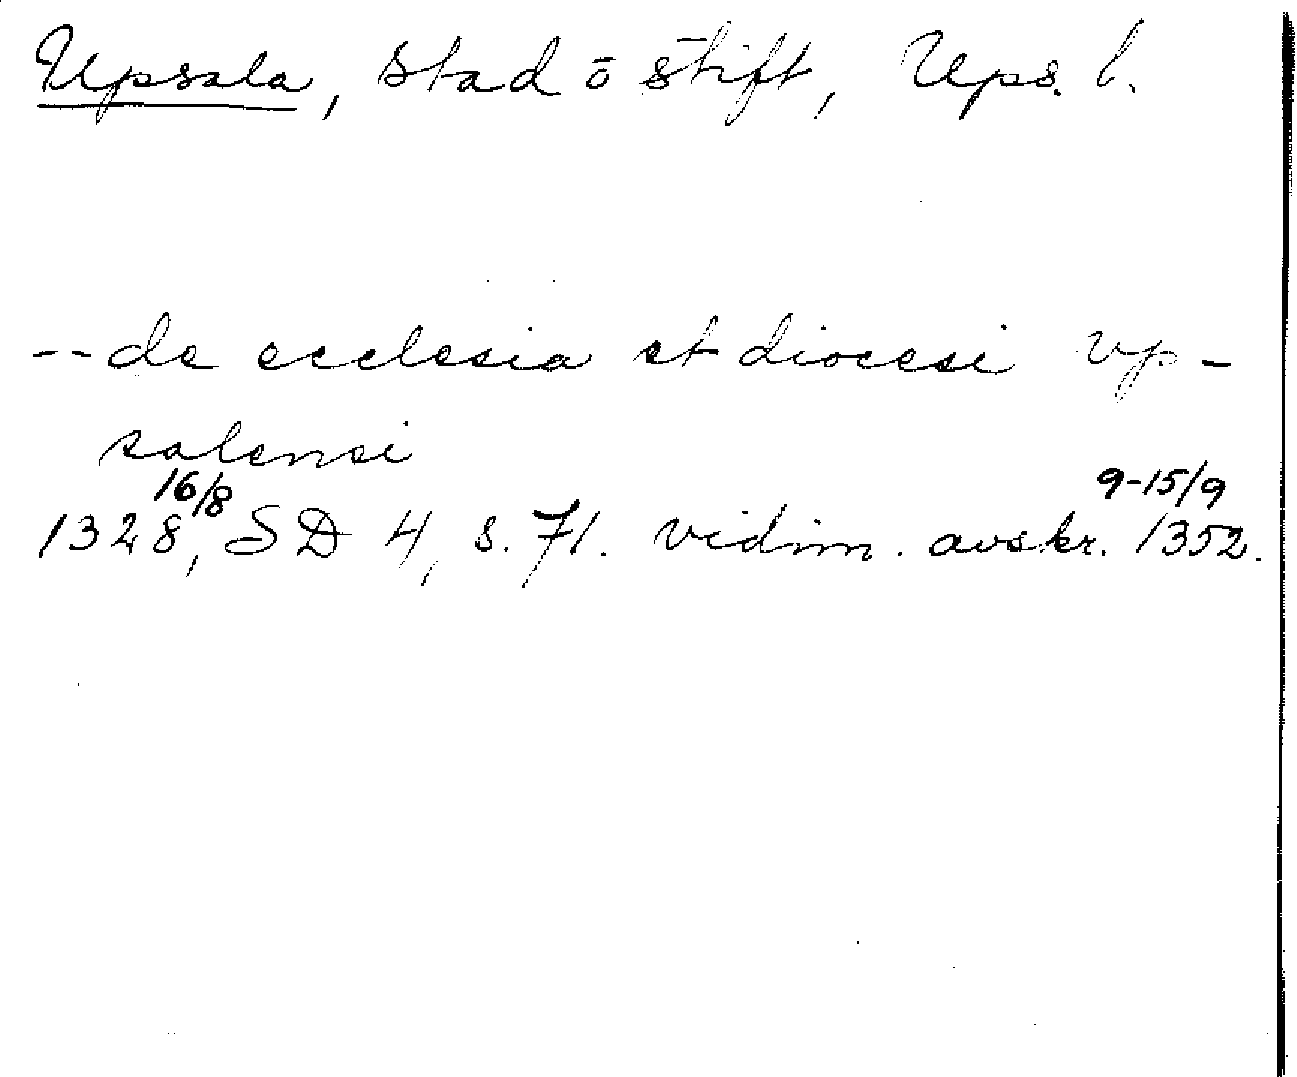 Upsala, stad ō stift, Ups. l.
-- de ecclesia et diocesi vp-
salensi
16/8 9-15/9
1328, SD 4, s. 71. vidim. avskr. 1352.